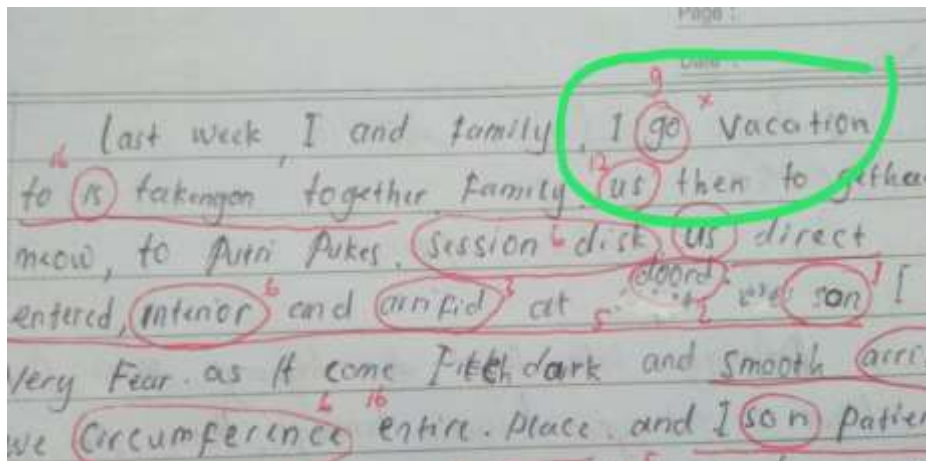 Page :
Date :
9 x
last week, I and family, I go vacation
16 12
to is takengon together family us then to gether
meow, to Putri Pukes. session 6 disk us direct
entered, interior 6 and arrifid 3 at 5 doord 2 son 1 I
Very Fear. as It come dark and smooth arri
6 16
we Circumference entire. place. and I son patien